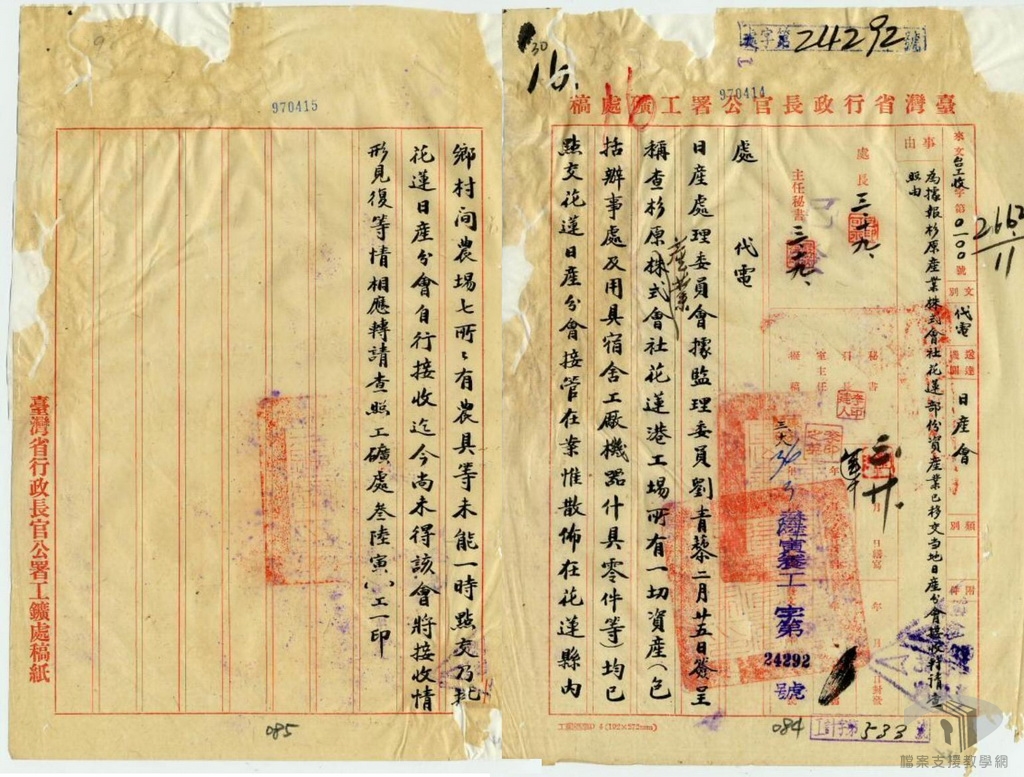 字第24292號
30
16.
970414
臺灣省行政長官公署工礦處稿
2662
11
來文台工收字第0100號
文別 代電
送達機關 日產會
類別
附件
事由
為據報杉原產業株式會社花蓮部份資產業已移交當地日產分會接收轉請查照由
處長 三.十九.
主任秘書 三.十九.
秘書
擬稿
24292
號
處 代電
日產處理委員會據監理委員劉青藜二月廿五日簽呈
稱查杉原產業株式會社花蓮港工場所有一切資產(包
括辦事處及用具宿舍工廠機器什具零件等)均已
點交花蓮日產分會接管在案惟散佈在花蓮縣內
工字第533號
084
970415
鄉村間農場七所所有農具等未能一時點交乃批
花蓮日產分會自行接收迄今尚未得該會將接收情
形見復等情相應轉請查照工礦處叁陸寅()工一印
臺灣省行政長官公署工鑛處稿紙
085
檔案支援教學網